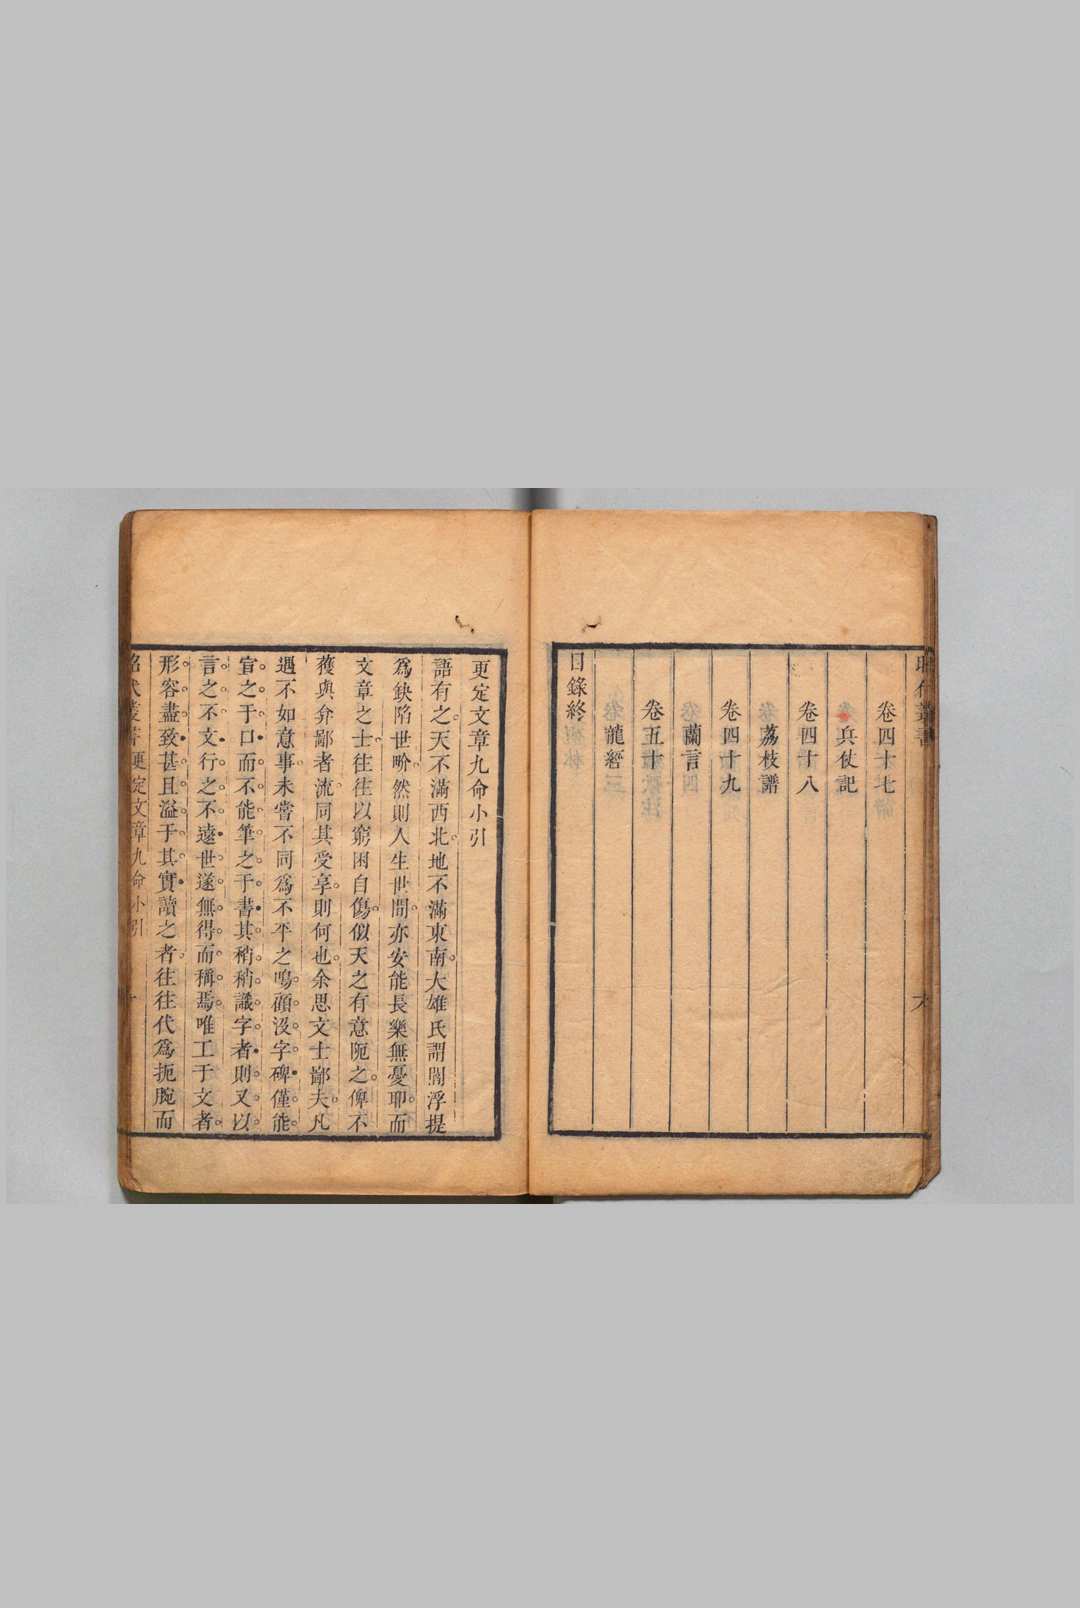 卷四十七
兵仗記
卷四十八
荔枝譜
卷四十九
蘭言
卷五十
龍經
目錄終
更定文章九命小引
語有之天不滿西北地不滿東南大雄氏謂閻浮提
爲缺陷世吩然則人生世間亦安能長樂無憂耶而
文章之士往往以窮困自傷似天之有意阨之俾不
獲與弇鄙者流同其受享則何也余思文士鄙夫凡
遇不如意事未嘗不同爲不平之鳴顧沒字碑僅能
宣之于口而不能筆之于書其稍稍識字者則又以
言之不文行之不遠世遂無得而稱焉唯工于文者
形容盡致甚且溢于其實讀之者往往代爲扼腕而
昭代叢書 更定文章九命小引